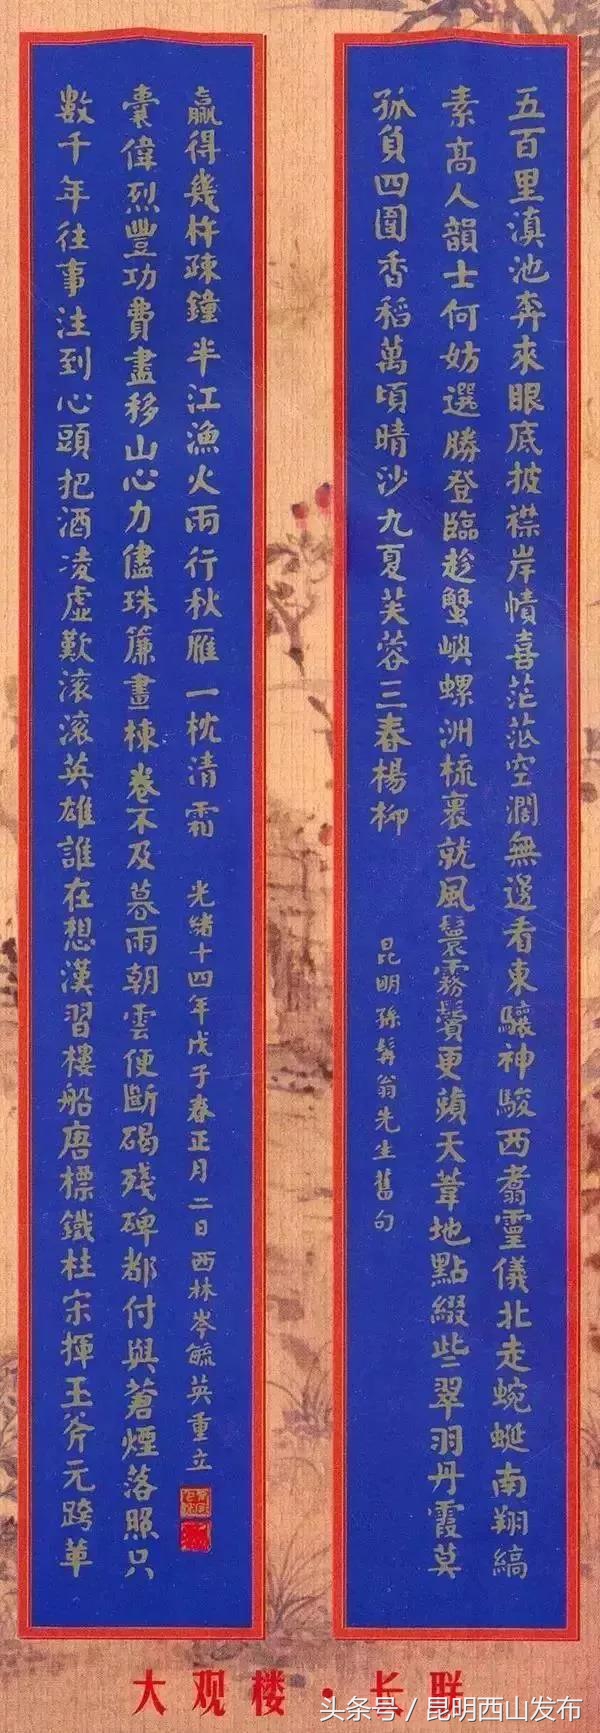 五百里滇池奔來眼底披襟岸幘喜茫茫空濶無邊看東驤神駿西翥靈儀北走蜿蜒南翔縞
素高人韻士何妨選勝登臨趁蟹嶼螺洲梳裹就風鬟霧鬢更蘋天葦地點綴些翠羽丹霞莫
孤負四圍香稻萬頃晴沙九夏芙蓉三春楊柳 昆明孫髯翁先生舊句
數千年往事注到心頭把酒凌虛歎滚滚英雄誰在想漢習樓船唐標鐵柱宋揮玉斧元跨革
囊偉烈豐功費盡移山心力儘珠簾畫棟卷不及暮雨朝雲便斷碣殘碑都付與蒼煙落照只
贏得幾杵疎鐘半江漁火兩行秋雁一枕清霜 光緒十四年戊子春正月二日西林岑毓英重立
大观楼·长联
头条号/昆明西山发布